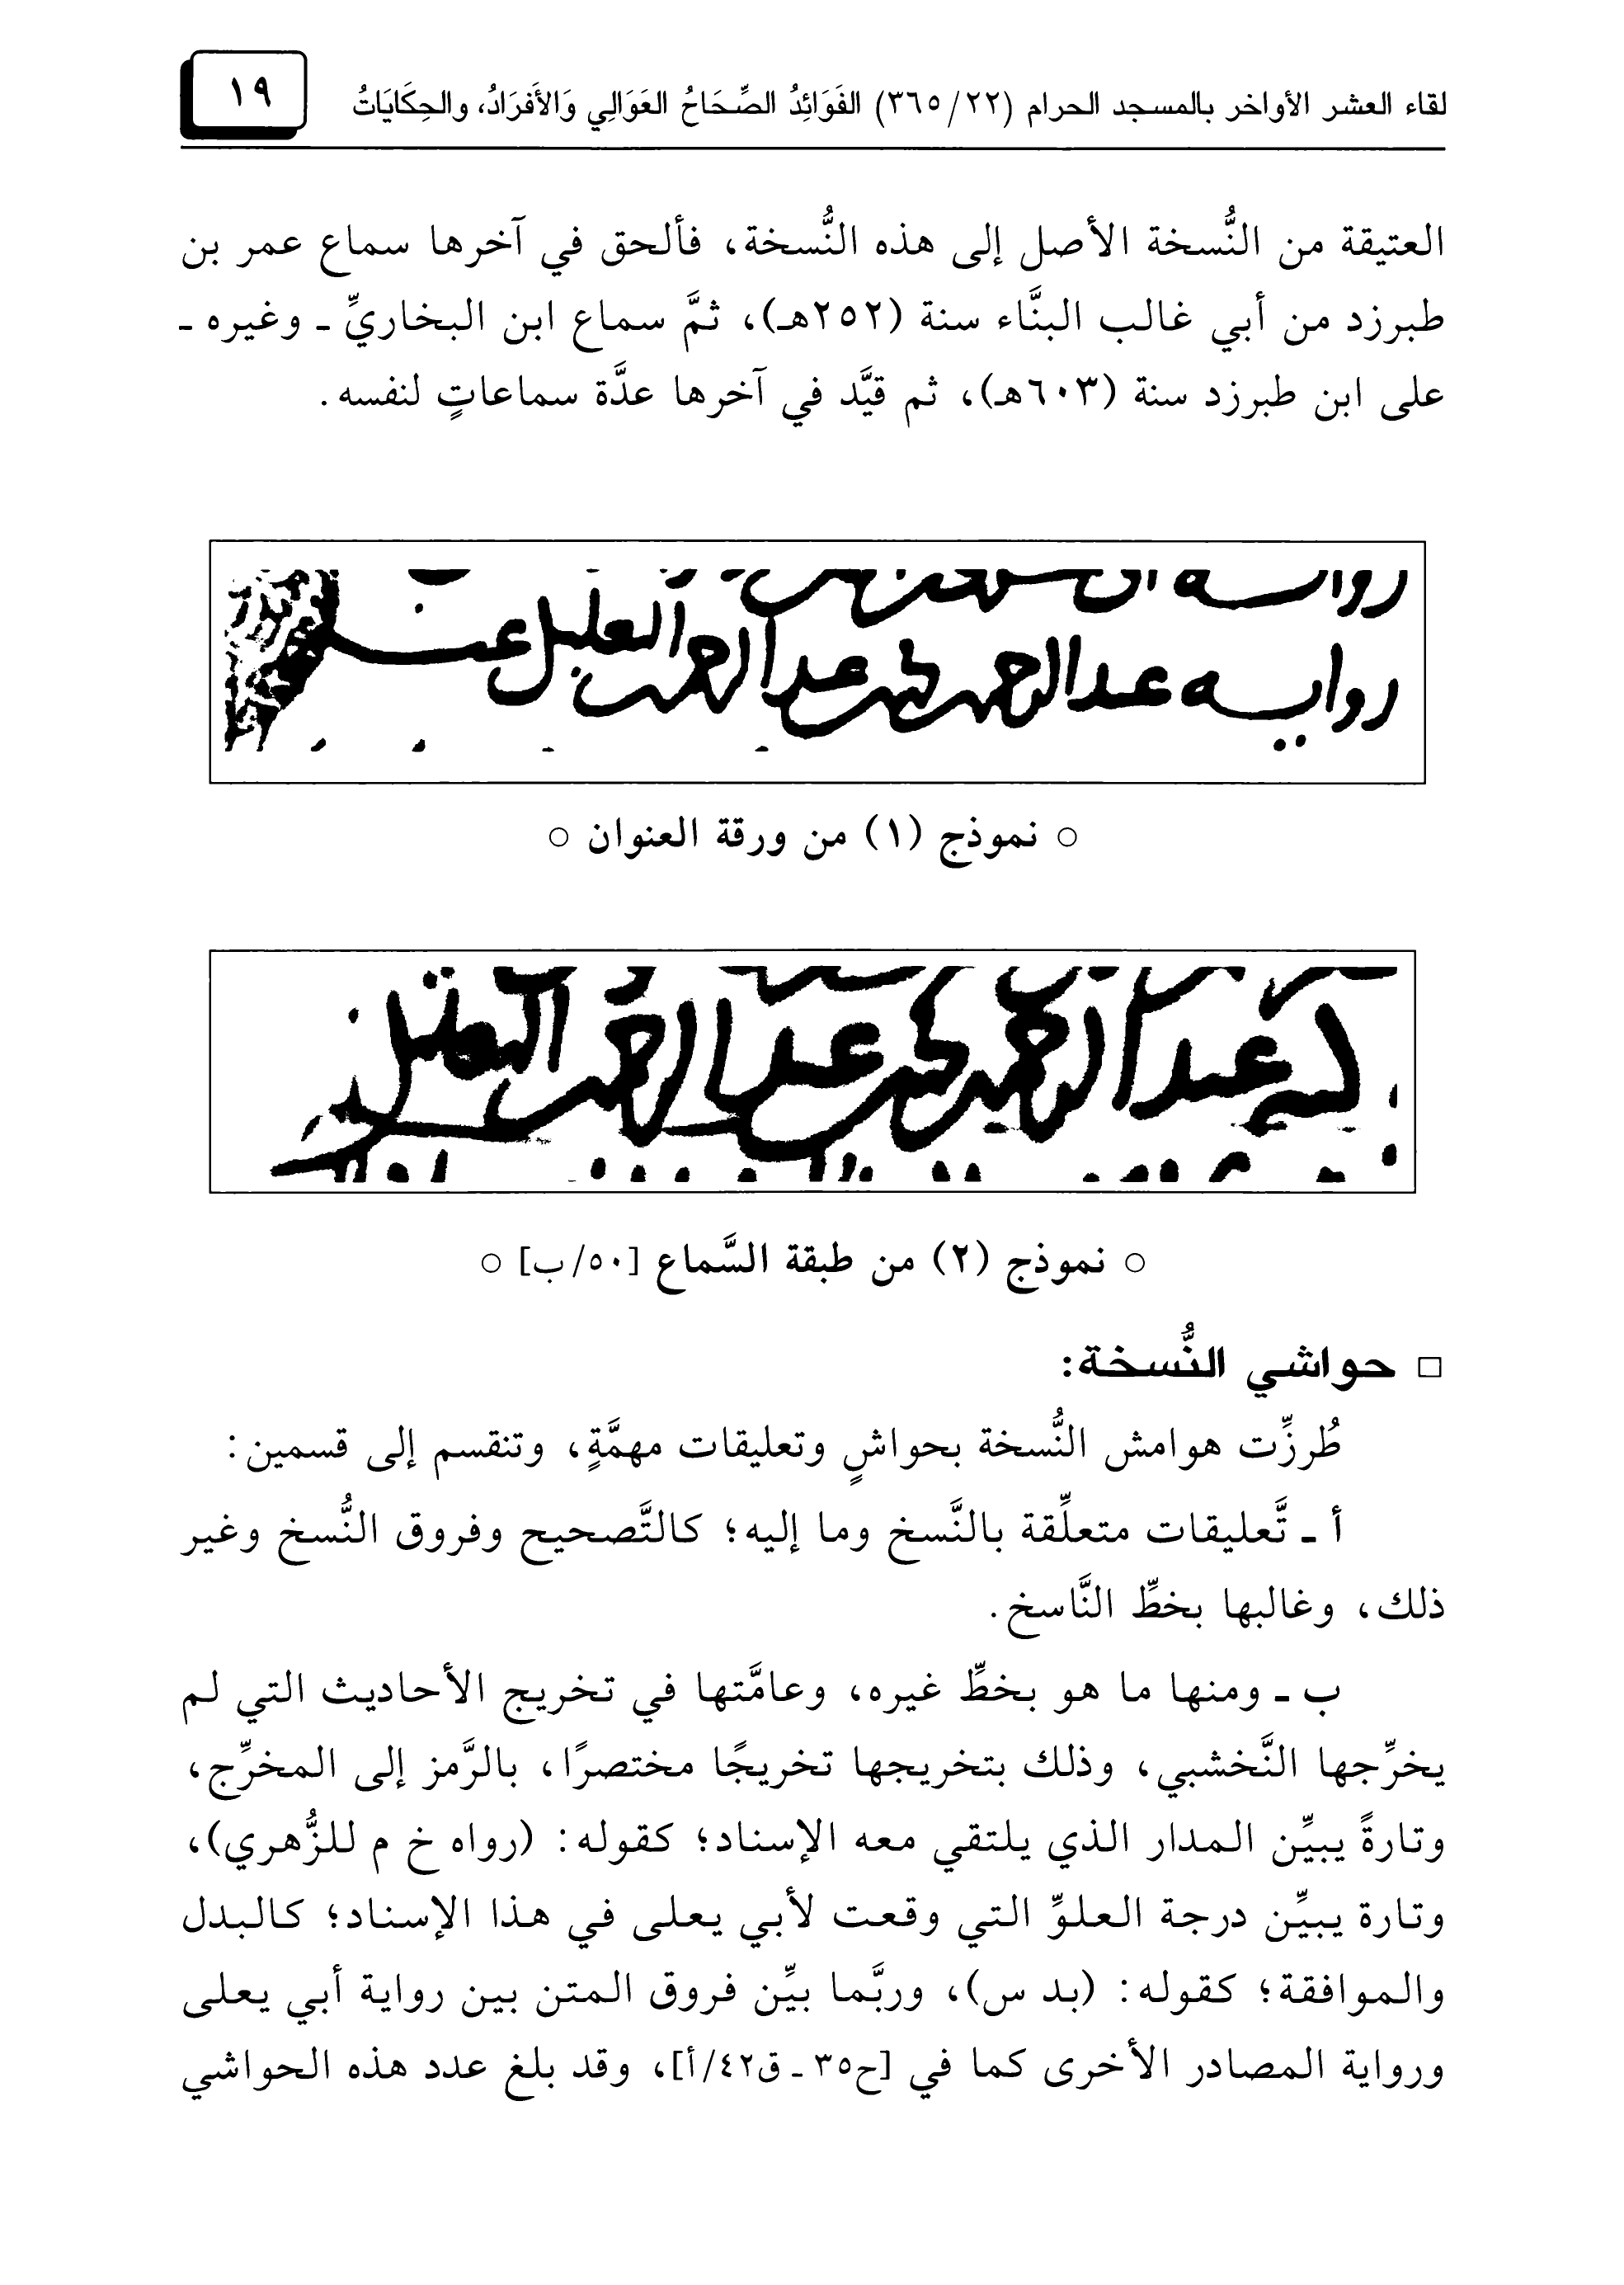 لقاء العشر الأواخر بالمسجد الحرام (٣٦٥/٢٢) الفَوَائِدُ الصِّحَاحُ العَوَالِي وَالأَفرَادُ، والحِكَايَاتُ
١٩
العتيقة من النُّسخة الأصل إلى هذه النُّسخة، فألحق في آخرها سماع عمر بن
طبرزد من أبي غالب البنَّاء سنة (٢٥٢هـ)، ثمَّ سماع ابن البخاريِّ ـ وغيره ـ
على ابن طبرزد سنة (٦٠٣هـ)، ثم قيَّد في آخرها عدَّة سماعاتٍ لنفسه.
روايه عبد الرحمن عبد الرحمن
○ نموذج (١) من ورقة العنوان ○
عبد الرحمن عبد الرحمن
○ نموذج (٢) من طبقة السَّماع [٥٠/ب] ○
□ حواشي النُّسخة:
طُرزِّت هوامش النُّسخة بحواشٍ وتعليقات مهمَّةٍ، وتنقسم إلى قسمين:
أ ـ تَّعليقات متعلِّقة بالنَّسخ وما إليه؛ كالتَّصحيح وفروق النُّسخ وغير
ذلك، وغالبها بخطِّ النَّاسخ.
ب ـ ومنها ما هو بخطِّ غيره، وعامَّتها في تخريج الأحاديث التي لم
يخرِّجها النَّخشبي، وذلك بتخريجها تخريجًا مختصرًا، بالرَّمز إلى المخرِّج،
وتارةً يبيِّن المدار الذي يلتقي معه الإسناد؛ كقوله: (رواه خ م للزُّهري)،
وتارة يبيِّن درجة العلوِّ التي وقعت لأبي يعلى في هذا الإسناد؛ كالبدل
والموافقة؛ كقوله: (بد س)، وربَّما بيِّن فروق المتن بين رواية أبي يعلى
ورواية المصادر الأخرى كما في [ح٣٥ ـ ق٤٢/أ]، وقد بلغ عدد هذه الحواشي